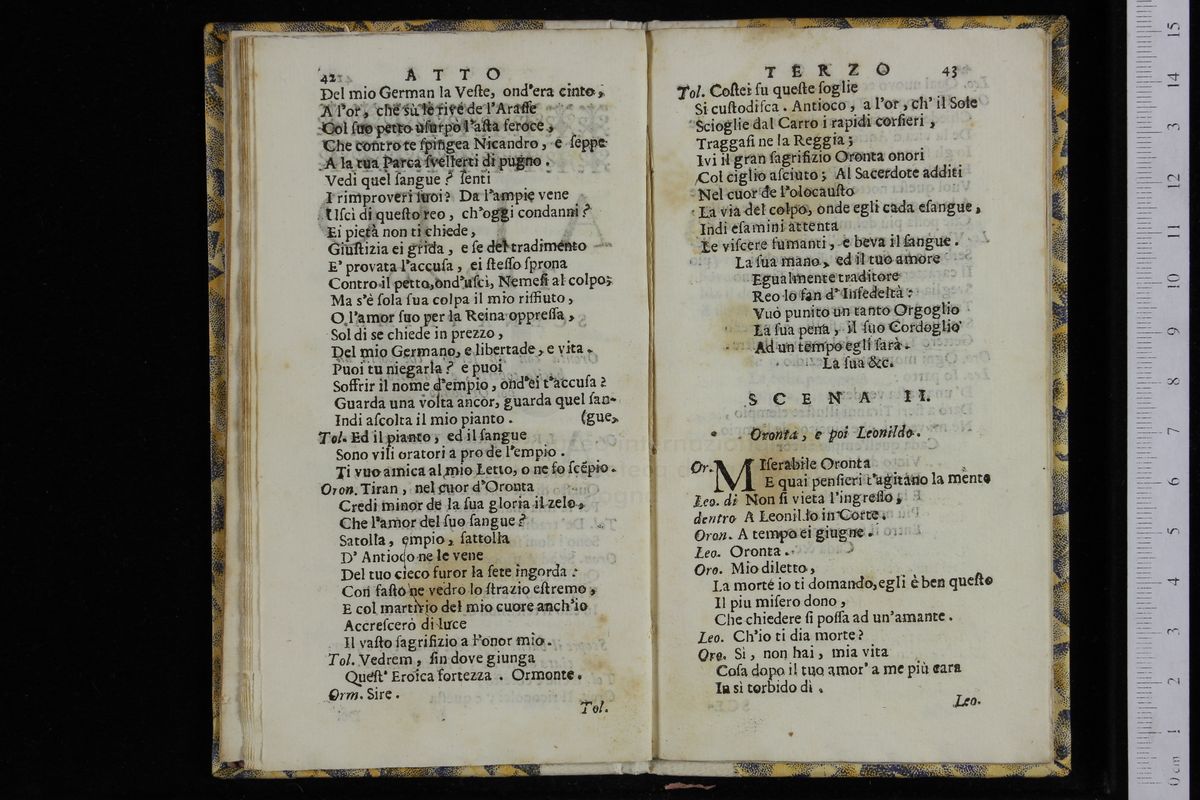 42 ATTO
Del mio German la Veſte, ond'era cinto,
A l'or, che sù le rive de l'Araſſe
Col ſuo petto uſurpò l'aſta feroce,
Che contro te ſpingea Nicandro, e ſeppe
A la tua Parca ſvellerti di pugno.
Vedi quel ſangue? ſenti
I rimproveri ſuoi? Da l'ampie vene
Uſcì di queſto reo, ch'oggi condanni?
Ei pietà non ti chiede,
Giuſtizia ei grida, e ſe del tradimento
E' provata l'accuſa, ei ſteſſo ſprona
Contro il petto, ond'uſcì, Nemeſi al colpo;
Ma s'è ſola ſua colpa il mio riffiuto,
O l'amor ſuo per la Reina oppreſſa,
Sol di se chiede in prezzo,
Del mio Germano, e libertade, e vita.
Puoi tu niegarla? e puoi
Soffrir il nome d'empio, ond'ei t'accuſa?
Guarda una volta ancor, guarda quel ſan-
Indi aſcolta il mio pianto. (gue,
Tol. Ed il pianto, ed il ſangue
Sono vili oratori a pro de l'empio.
Ti vuo amica al mio Letto, o ne fo ſcēpio.
Oron. Tiran, nel cuor d'Oronta
Credi minor de la ſua gloria il zelo,
Che l'amor del ſuo ſangue?
Satolla, empio, ſattolla
D' Antioco ne le vene
Del tuo cieco furor la ſete ingorda:
Con faſto ne vedro lo ſtrazio eſtremo,
E col martirio del mio cuore anch'io
Accreſcerò di luce
Il vaſto ſagrifizio a l'onor mio.
Tol. Vedrem, ſin dove giunga
Queſt' Eroica fortezza. Ormonte.
Orm. Sire.
Tol.
TERZO 43
Tol. Coſtei ſu queſte ſoglie
Si cuſtodiſca. Antioco, a l'or, ch' il Sole
Scioglie dal Carro i rapidi corſieri,
Traggaſi ne la Reggia;
Ivi il gran ſagrifizio Oronta onori
Col ciglio aſciuto; Al Sacerdote additi
Nel cuor de l'olocauſto
La via del colpo, onde egli cada eſangue,
Indi eſamini attenta
Le viſcere fumanti, e beva il ſangue.
La ſua mano, ed il tuo amore
Egualmente traditore
Reo lo fan d' Infedeltà:
Vuò punito un tanto Orgoglio
La ſua pena, il ſuo Cordoglio
Ad un tempo egli ſarà.
La ſua &c.
SCENA II.
Oronta, e poi Leonildo.
Or. MIſerabile Oronta
E quai penſieri t'agitano la mente
Leo. di Non ſi vieta l'ingreſſo,
dentro A Leonildo in Corte.
Oron. A tempo ei giugne.
Leo. Oronta.
Oro. Mio diletto,
La morte io ti domando, egli è ben queſto
Il piu miſero dono,
Che chiedere ſi poſſa ad un'amante.
Leo. Ch'io ti dia morte?
Oro. Si, non hai, mia vita
Coſa dopo il tuo amor' a me più cara
In sì torbido dì.
Leo.